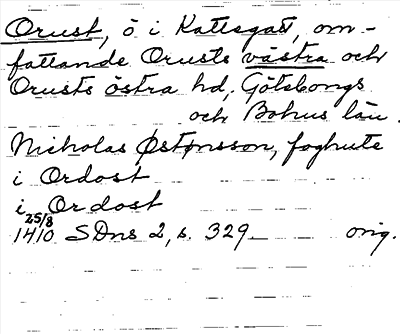 Orust, ö i Kattegat, om-
fattande Orusts västra och
Orusts östra hd, Göteborgs
och Bohus län.
Nicholas Østønsson, foghute
i Ordost
i Ordost
25/8
1410 SDns 2, s. 329 orig.